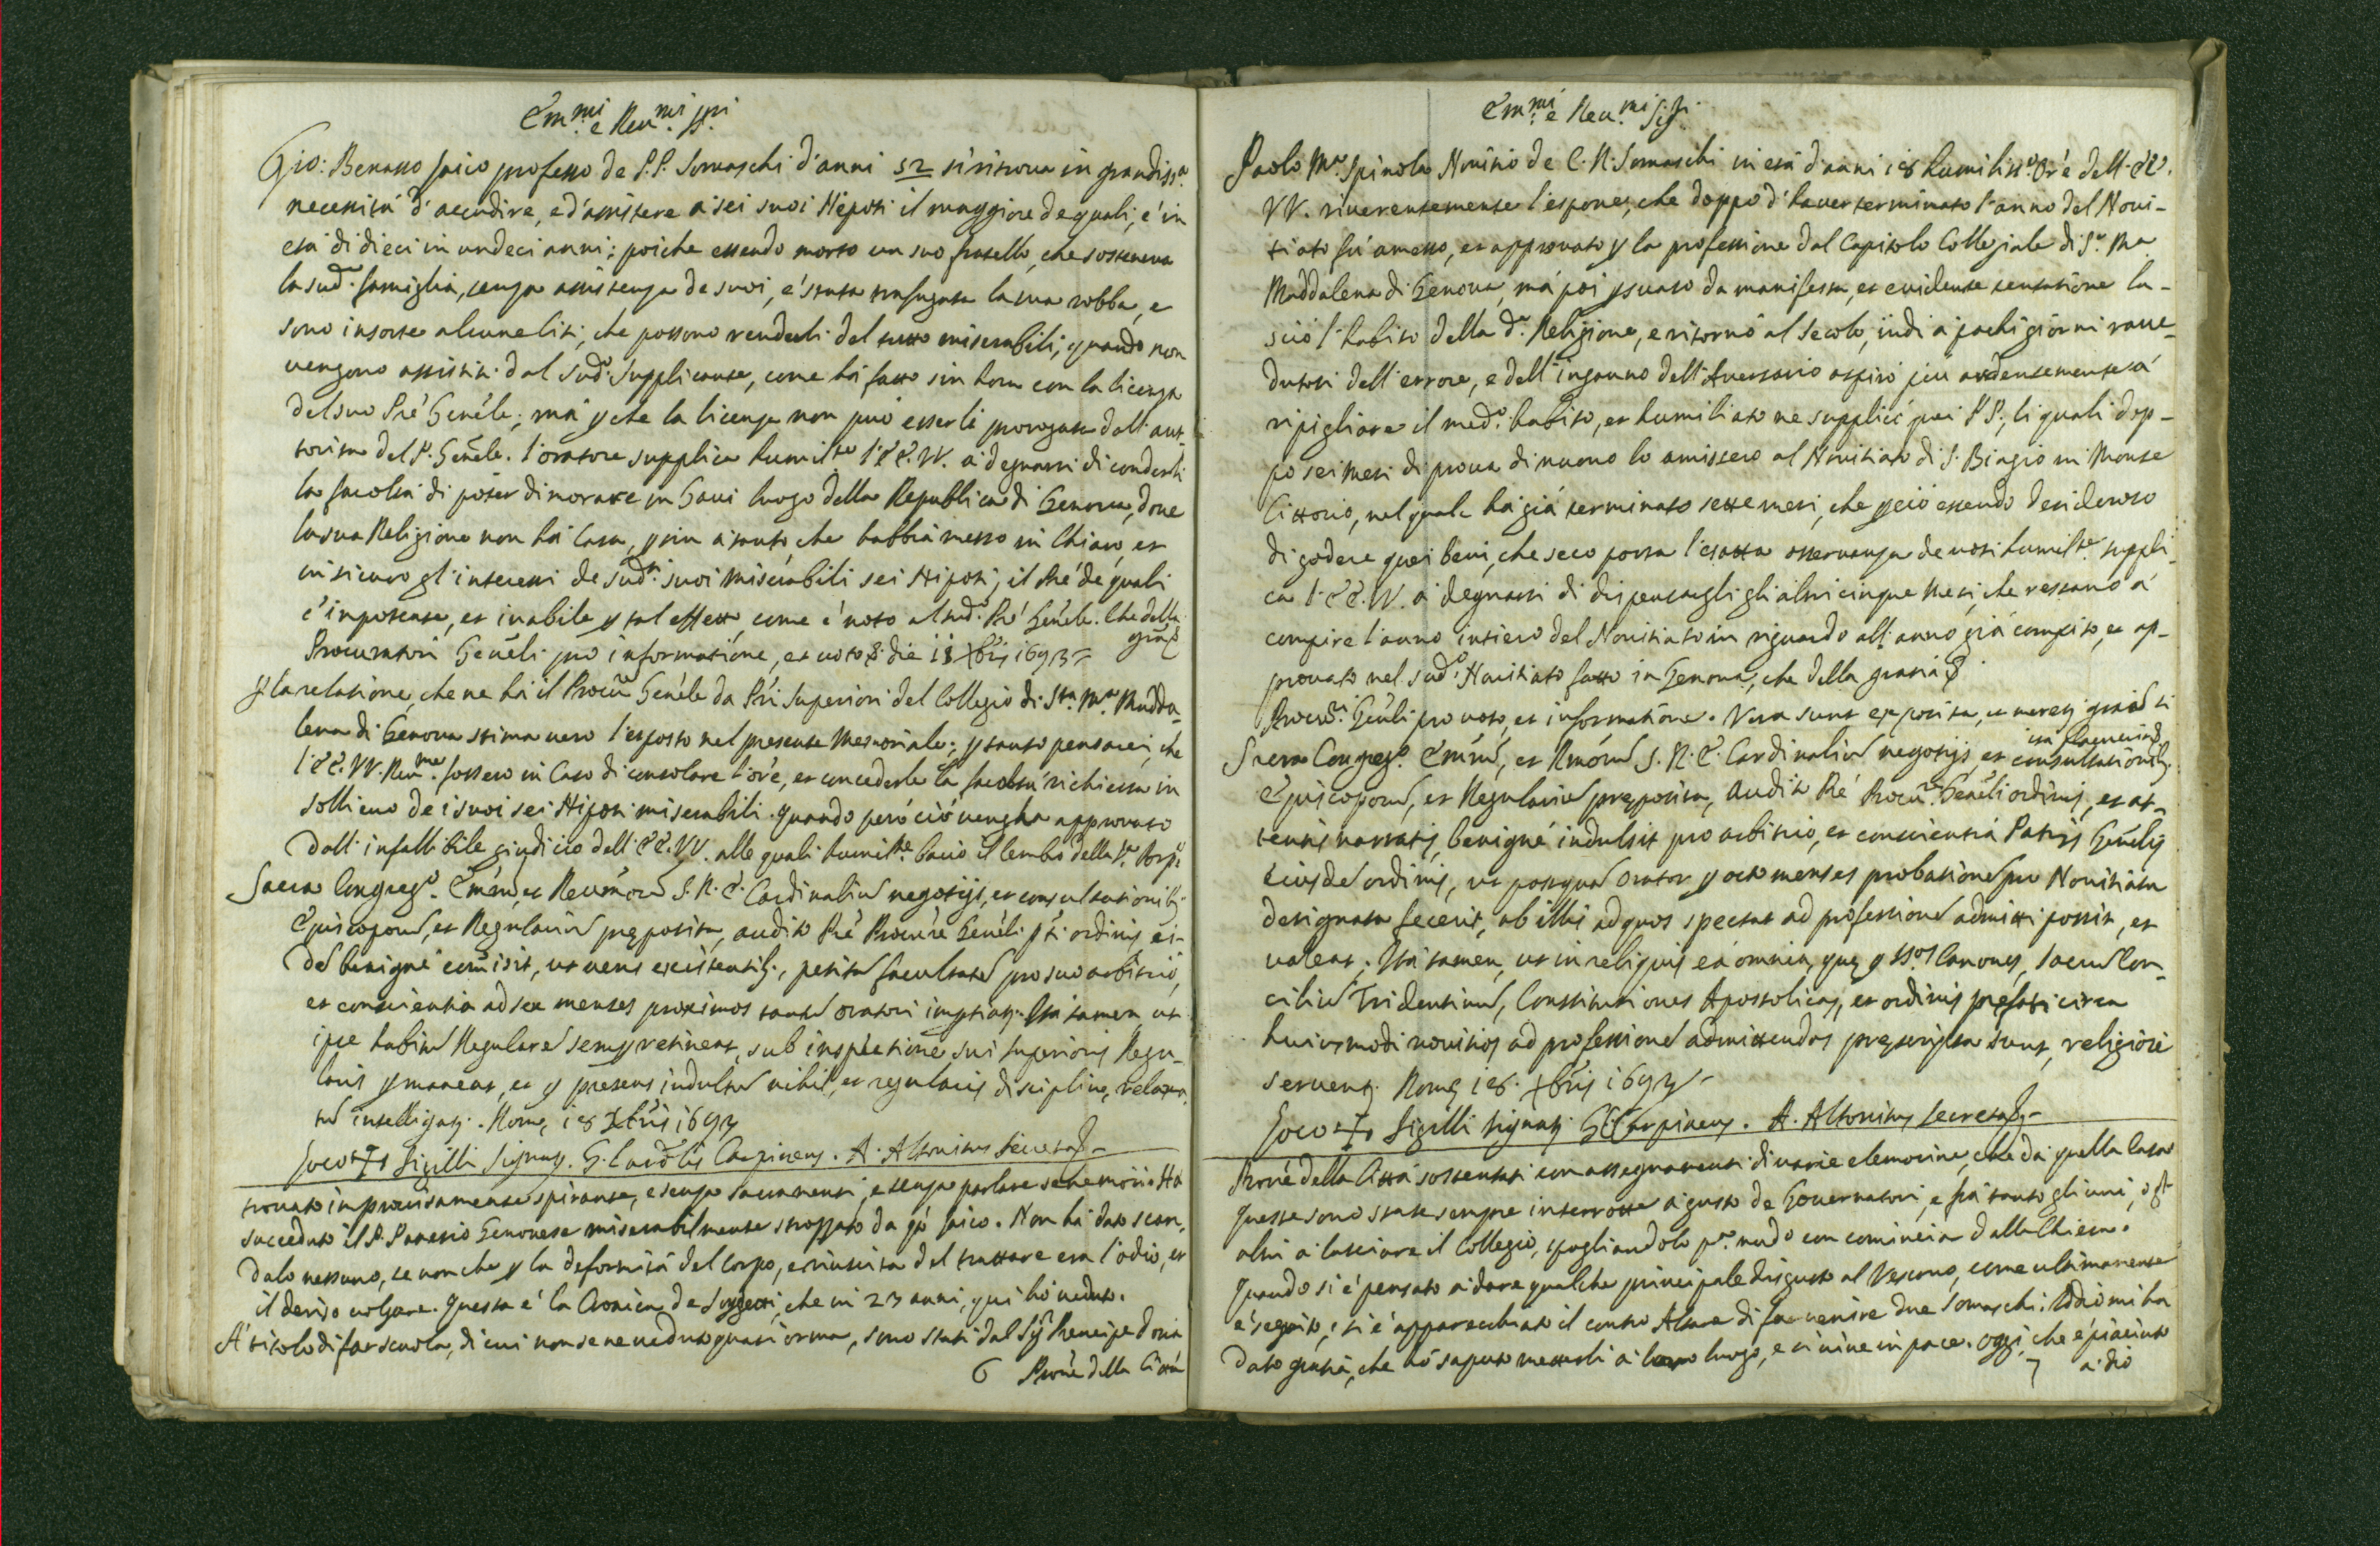 Em.mi e Reu.mi ssri
Gio: Benasso laico professo de P.P. Somaschi d'anni 52 si ritroua in grandiss.a
necessità d'accudire, e d'assistere a' sei suoi Nepoti il maggiore de quali, é in
età di dieci in undeci anni; poiche essendo morto un suo fratello, che sosteneua
la sud.a famiglia, senza assistenza de suoi, é stata trafugata la sua robba, e
sono insorte alcune liti, che possono renderli del tutto miserabili, quando non
uengono assistiti dal sud.o supplicante, come há fatto sin hora con la licenza
del suo Pré Genéle; má pche la licenza non può esserli prorogata dall'aut-
torità del P. Genéle. l'oratore supplica humilte l'EE. VV. á degnarsi di concederli
la facoltà di poter dimorare in Gaui luogo della Republica di Genoua, doue
la sua Religione non há Casa, p sin á tanto, che habbia messo in Chiaro, et
in sicuro gl'interessi de sud.i suoi miserabili sei Nipoti, il Pré de quali
é impotente, et inabile p tal effetto, come é noto al sud.o Pré Genéle. Che della
graz
Procuratori Genéli pro informatione, et uoto die 18 Xbris 1693
P la relatione, che ne há il Procu.re Genéle da Pri Superiori del Collegio di S.ta M.a Madda-
lena di Genoua stima uero l'esposto nel presente Memoriale; p tanto pensarei, che
l'EE. VV. Reu.me fossero in Caso di consolare l'oré, et concederle la facoltà richiesta in
sollieuo de i suoi sei Nipoti miserabili. quando però ciò uengha approuato
Dall'infallibile giudicio dell'EE. VV. alle quali humilte bacio il lembo della S.a Porp.a
Sacra Congreg.o Emén, et Reuméor S. R. E. Cardinaliu negotijs, et consultationibs
Episcoporu, et Regulariu preposita, audito Pré Procu.re Genéli pti ordinis ei-
de benigne comisit, ut ueris existentibs, petita facultate pro suo arbitrio,
et conscientia ad sex menses proximos tantu oratori imptiat. Ita tamen ut
ipse habitu Regulare semp retineat, sub inspectione sui superioris Regu-
laris pmaneat, et p presens indultu nihil et regularis discipline relaxa-
tu intelligat. Rome, 18 Xbris 1693
Loco + Sigilli Signat. G. Car.lis Carpineus. A. Altouitus Secret.s
trouato improuisamente spirante, e senza sacramenti, e senza parlare se ne morì. Ha
succeduto il P. Genouese miserabilmente strozzato da laico. Non há dato scan-
dalo nessuno, se non che p la deformità del corpo, e riuscita del trattare era l'odio, et
il deriso uolgare. Questa é la Cronica de Soggetti, che in 23 anni, qui hò ueduto.
A' titolo di far scuola, di cui non se ne ueduto quasi orma, sono stati dal Sig.r Prencipe doria
6 Proué della Città
Em.mi e Reu.mi Sig.ri
Paolo M.a Spinola Nouitio de C. R. Somaschi in età d'anni 18 humiliss.o Oré dell'EE.
VV. riuerentemente l'espone, che doppo d'hauer terminato l'anno del Noui-
tiato fù amesso, et approuato p la professione dal Capitolo Collegiale di S.a Ma
Maddalena di Genoua, má poi psuaso da manifesta, et euidente tentatione la-
sciò l'habito della d.a Religione, e ritornò al secolo, indi á pochi giorni raue-
dutosi dell'errore, e dell'inganno dell'Auersario aspirò più ardentemente á
ripigliare il med.o habito, et humiliato ne supplicò quei P P., li quali dop-
po sei mesi di proua di nuouo lo amissero al Nouitiato di S. Biagio in Monte
Cittorio, nel quale há già terminato sette mesi, che p ciò essendo desideroso
di godere quei beni, che seco porta l'esatta osseruanza de uoti humilte suppli-
ca l'EE. VV. á degnarsi di dispensargli gli altri cinque mesi, che restano á
compire l'anno intiero del Nouitiato in riguardo all'anno già compito, et ap-
prouato nel sud.o Nouitiato fatto in Genoua, che della gratia
Procu.ri Genéli pro uoto, et informatione. Vera sunt exposita, et meret graia si
ita placuerint
Sacra Congreg.o Eminu, et Rmoru S. R. E. Cardinaliu negotijs, et consultationibs
Episcoporu, et Regulariu preposita, audito Pré Procu.re Genéli ordinis, et at-
tentis narratis, benigne indulsit pro arbitrio, et conscientia Patris Genélis
eiusde ordinis, ut postqua Orator p octo menses probatione pro Nouitiatu
designata fecerit, ab illis ad quos spectat ad professione admitti possit, et
ualeat. Ita tamen, ut in reliquis ea omnia, que p ssos Canones, sacru Con-
ciliu Tridentinu, Constitutiones Apostolicas, et ordinis prefati circa
huiusmodi nouitios ad professione admittendos prescripta sunt, religiose
seruent. Rome 18. Xbris 1693
Loco + Sigilli signat. G. Carpineus. A. Altouitus Secret.s
Proué della Città sostentati con assegnamenti di uarie elemosine, che dà quella Casa
queste sono state sempre interrotte á gusto de Gouernatori, e frà tanto gli uni, e gl'
altri á lasciare il Collegio, spogliandolo p.a nudo con cominciar dalla Chiesa.
Quando si é pensato á dare qualche principale disgusto al Vescouo, come ultimamente
é seguito, si é apparecchiato il contro Altare di far uenire due Somaschi. Iddio mi ha
dato gratia, che hó saputo metterli á loro luogo, e si uiue in pace. Oggi, che é piaciuto
7 a dio